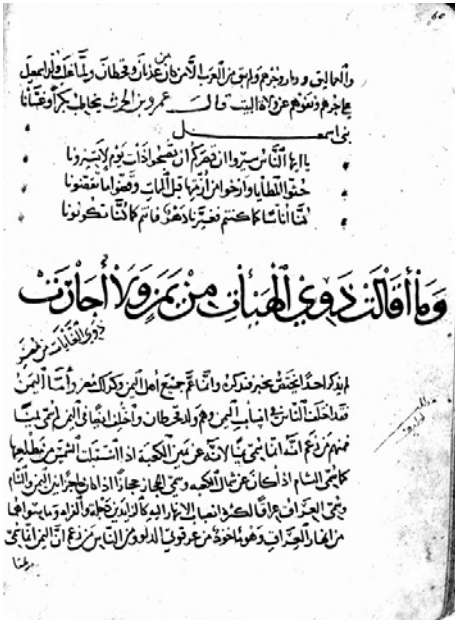 60
والعماليق ووبار وجرهم ولم يبق من العرب الا من كان من عدنان وقحطان ولما تغلب ولد اسمعيل
على جرهم ونفوهم عن ولاة البيت قال عمرو بن الحرث يخاطب بكرا وغبشانا
بني اسمعيل
يا ايها الناس سيروا ان قصركم ان تصبحوا ذات يوم لا تسيرونا
حثوا المطايا وارخوا من ازمتها قبل الممات وقضوا ما تقضونا
كنا أناسا كما كنتم فغيرنا دهر فانتم كما كنا تكونونا
وما أقالت ذوي الهيئات من يمن ولا أجارت
ذوي الغايات من مضر
لم يذكر احدا يختص بخبر فنذكره وانما عم جميع أهل اليمن وكذلك مضر وأما اليمن
فقد اختلف الناس في انساب اليمن وهم ولد قحطان واختلف ايضا في اليمن لم سمي يمنا
فمنهم من زعم أنه انما سمي يمنا لانه عن يمين الكعبة اذا استقبلت الشمس من مطلعها
كما سمي الشام اذ كان عن شمال الكعبة وسمي الحجاز حجازا اذ كان حاجزا بين اليمن والشام
وسمي العراق عراقا لكثرة انصباب الانهار اليه كالزابين ودجلة والفرات وما يتواليها
من انهار العراق وهو مأخوذ من عرقوتي الدلو ومن الناس من زعم أن اليمن انما سمي